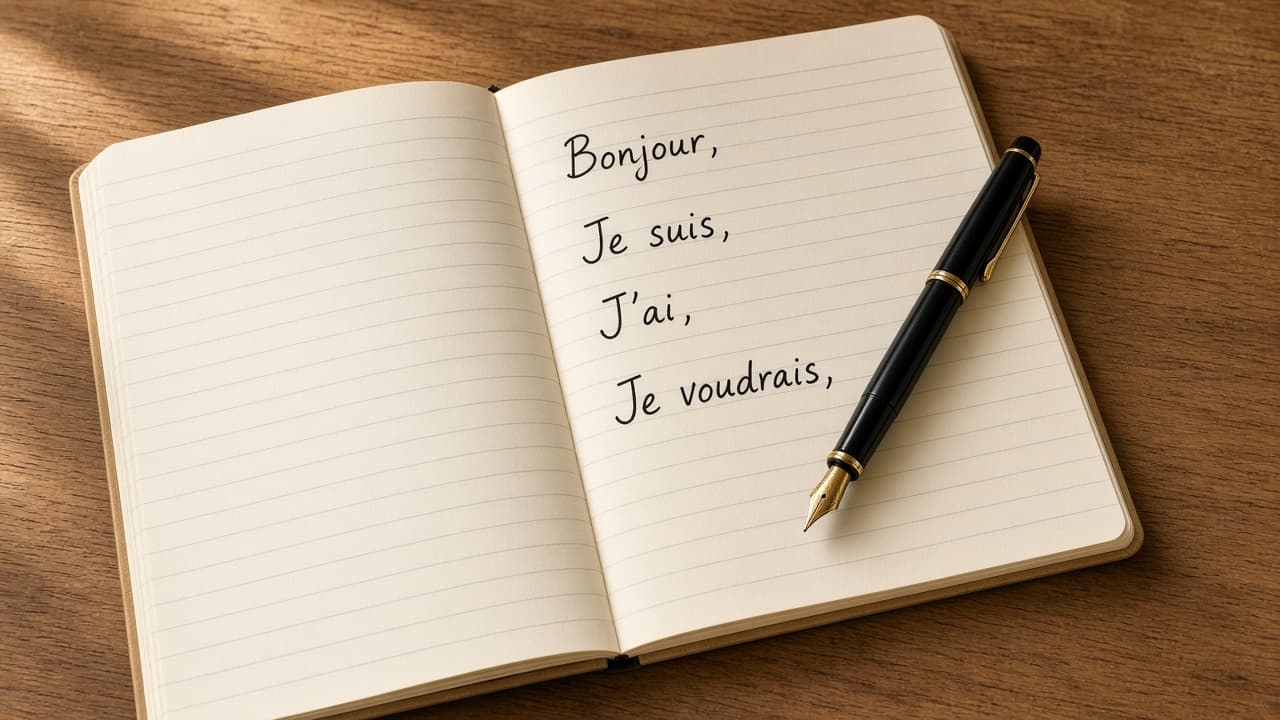 Bonjour,
Je suis,
J'ai,
Je voudrais,